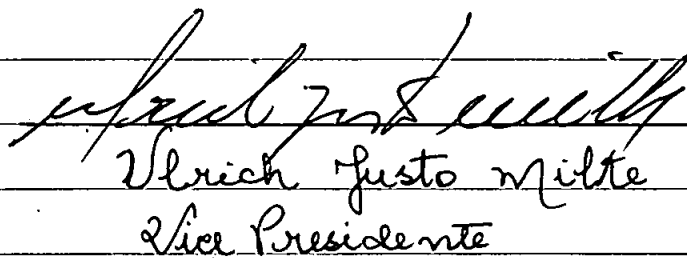 Ulrich Justo Milke
Vice Presidente